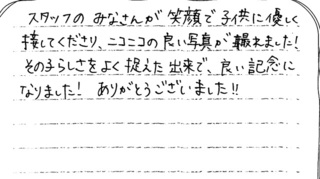 スタッフの みなさんが 笑顔で 子供に優しく
接してくださり、ニコニコの良い写真が撮えました!
その子らしさをよく捉えた出来で、良い記念に
なりました! ありがとうございました!!